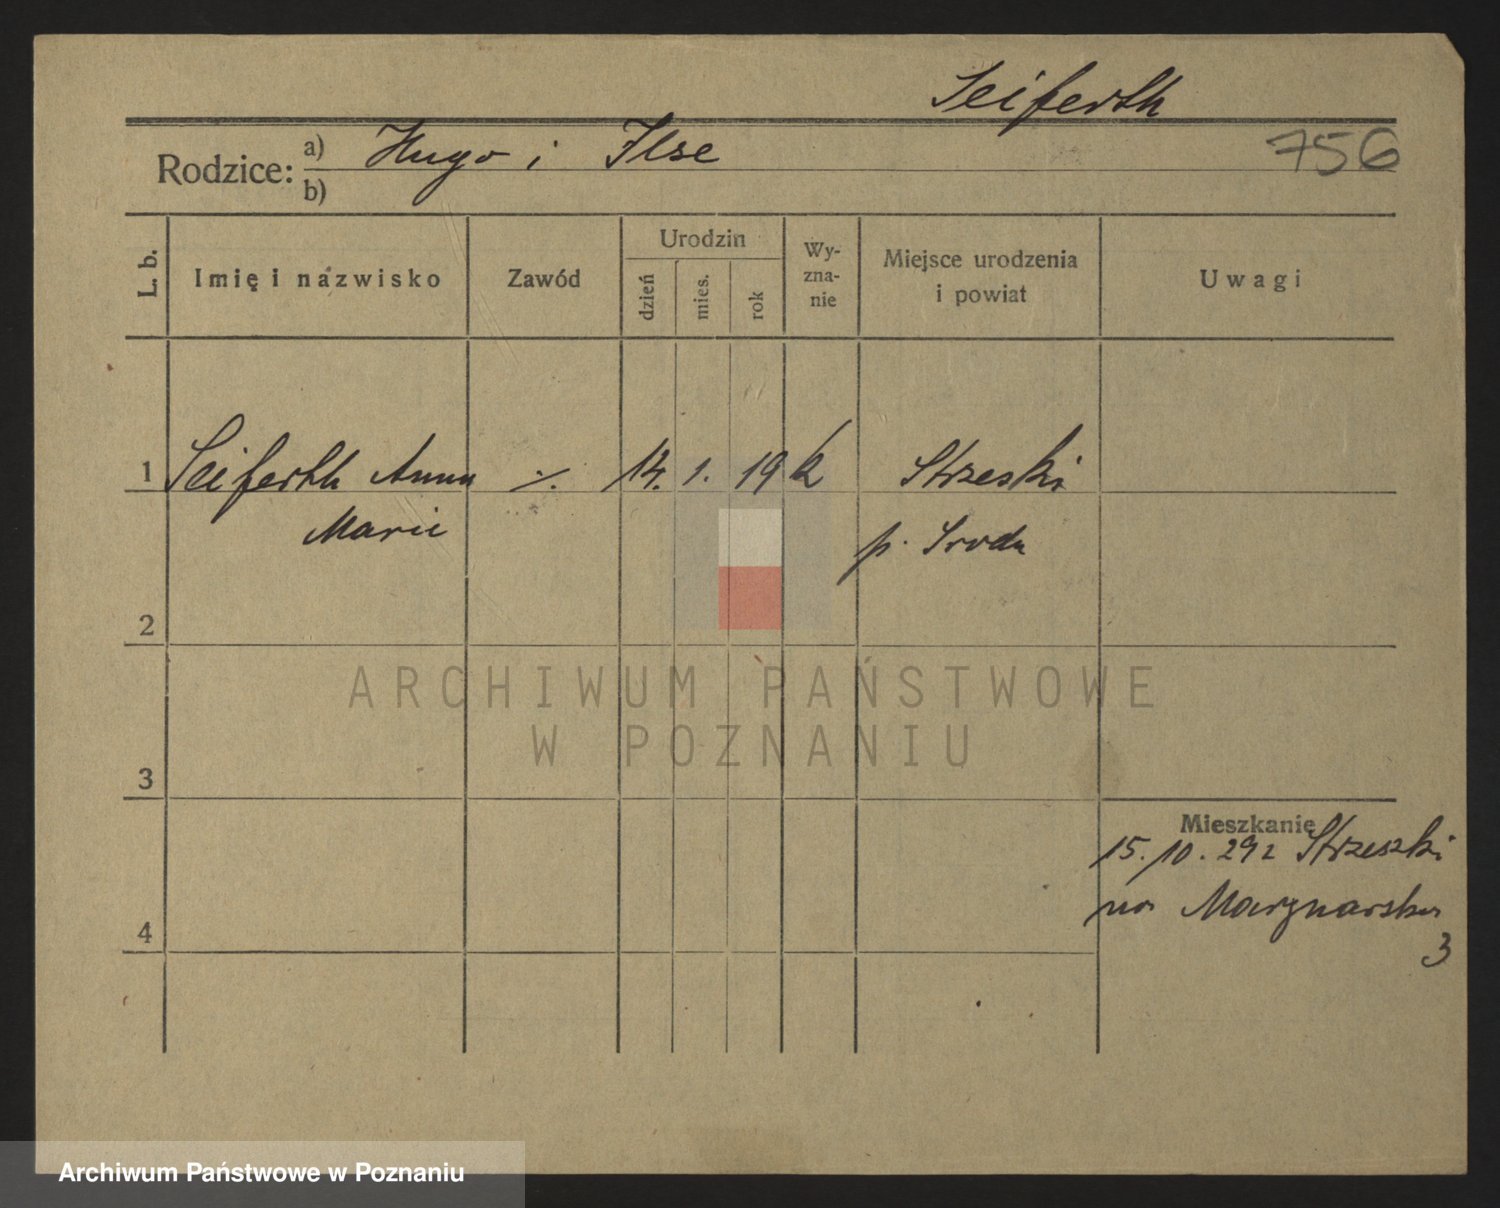 Seiferth
Rodzice: a) Hugo i Ilse
756
b)
L. b.
Imię i nazwisko
Zawód
Urodzin
dzień
mies.
rok
Wy-
zna-
nie
Miejsce urodzenia
i powiat
Uwagi
1 Seiferth Anna ./. 14. 1. 19 Strzeski
Marie p. Sroda
2
ARCHIWUM PAŃSTWOWE
W POZNANIU
3
Mieszkanie
15. 10. 29 z Strzeszki
na Marynarska
4
3
Archiwum Państwowe w Poznaniu